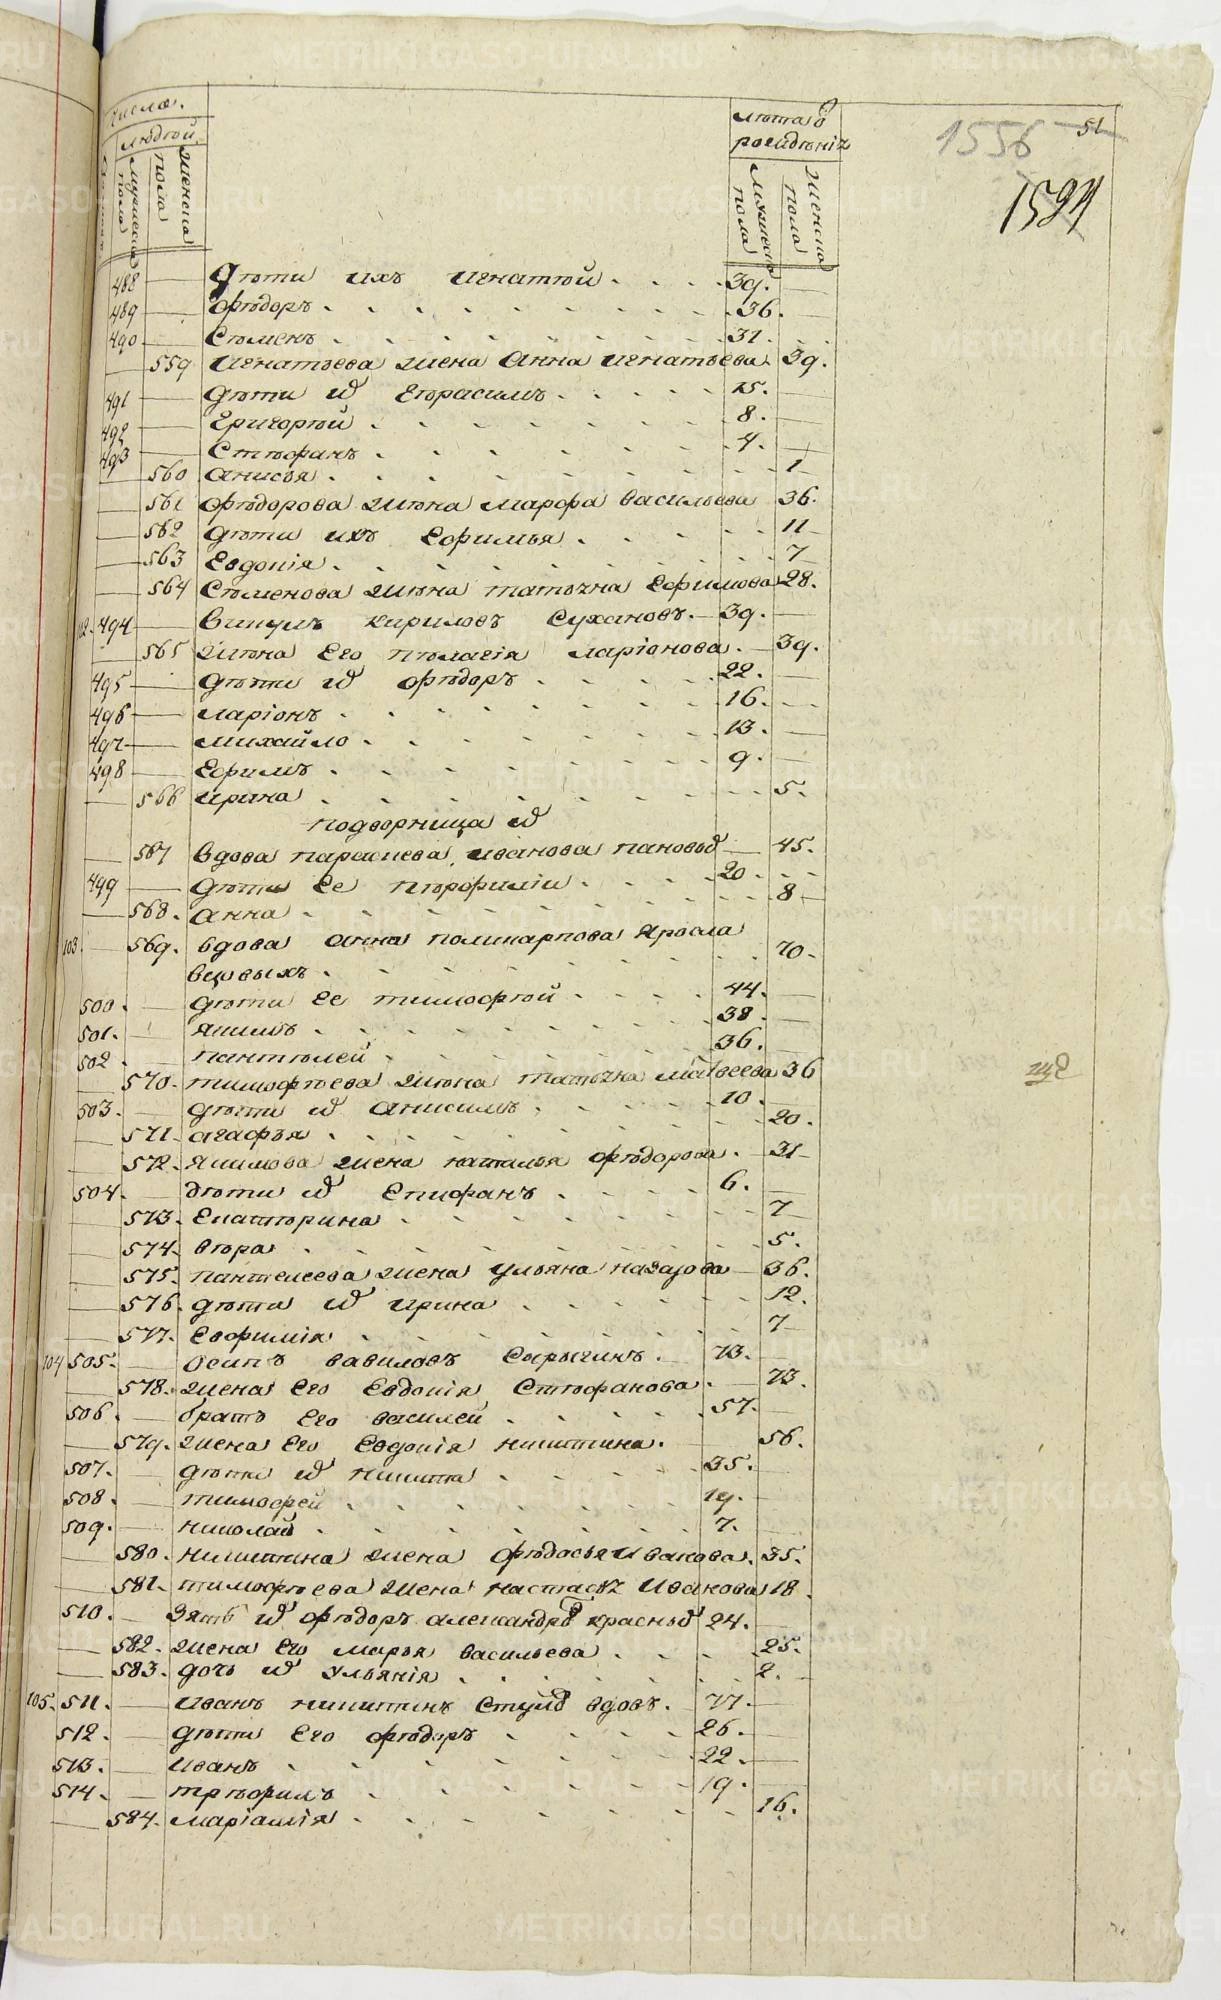 числа.
людей
мужеска пола
женска пола
лѣта ѿ рождѣнія
мужеска пола
женска пола
1556
51
1594
488 — Дѣти ихъ Игнатѣй 39. —
489 — Ѳѣдоръ 36. —
490 — Сѣменъ 31. —
— 559 Игнатьева жена Анна Игнатьева 39.
491 — дѣти их Егорасимъ 15. —
492 — Григорѣй 8. —
493 — Стѣфанъ 4. —
— 560 Анисья 1
— 561 Ѳѣдорова жѣна Марфа Васильева 36.
— 562 дѣти ихъ Ефимья 11
— 563 Евдокія 7
— 564 Сѣменова жѣна Татьяна Ефимова 28.
102. 494 — Викулъ Кириловъ Сухановъ 39. —
— 565 Жѣна Его Пѣлагія Ларіонова 39.
495 — дѣти их Ѳѣдоръ 22. —
496 — Ларіонъ 16. —
497 — Михайло 13. —
498 — Ефимъ 9. —
— 566 Ирина 5.
подворница их
— 567 вдова Параскева Иванова Пановых 45.
499 — дѣти Ее Пѣрфилій 20. —
— 568. Анна 8
103. — 569. вдова Анна Поликарпова Яросла
вцовыхъ 70.
500. — дѣти Ее Тимофѣй 44. —
501. — Якимъ 38. —
502 — Пантѣлей 36. —
— 570. Тимофѣева жѣна Татьяна Матвеева 36
503. — дѣти их Анисимъ 10. —
— 571. Агафья 20.
— 572. Якимова жена Наталья Ѳѣдорова. 31
504. — дѣти их Епифанъ 6. —
— 573. Екатѣрина 7
— 574. вѣра 5.
— 575. Пантелеева жена Ульяна Назарова 36.
— 576. дѣти их Ирина 12.
— 577. Евфимія 7
104 505. — Осипъ Вавиловъ Сырыгинъ. 73. —
— 578. жена Его Евдокія Стѣфанова 73.
506. — братъ Его Василей 57. —
— 579. жена Его Евдокія Никитина. 56.
507. — дѣти их Никита 35. —
508. — Тимофей 19. —
509. — Николай 7. —
— 580. Никитина жена Ѳѣдосья Иванова. 35.
— 581. Тимофѣева жена Настасья Иванова 18.
510. — Зять их Ѳѣдоръ Александров Красных 24. —
— 582. жена Его Марья Васильева 25.
— 583. дочь их Ульянія 2.
105. 511. — Иванъ Никитинъ вдовъ. 77. —
512. — дѣти Его Ѳѣдоръ 26. —
513. — Иванъ 22. —
514. — Трѣфилъ 19. —
— 584. Маріамія 16.